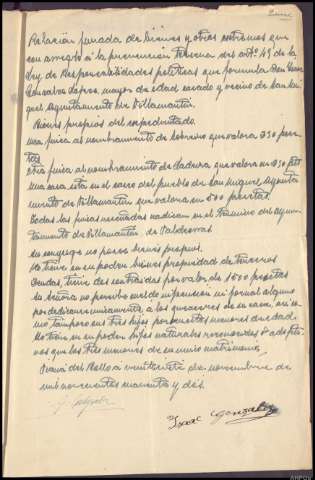 Relación jurada de bienes y otros extremos que
con arreglo á la prevención tercera del artº 49 de la
Ley de Responsabilidades políticas que formula Don Isaac
González López, mayor de edad casado y vecino de San Mi-
guel Ayuntamiento de Villamartín.
Bienes propios del expedientado.
Una finca al nombramiento de que valora 250 pese-
tas
Otra finca al nombramiento de ladera que valora en 250 pts
Una casa sita en el casco del pueblo de San Miguel, Ayunta-
miento de Villamartín que valora en 500 pesetas.
Todas las fincas reseñadas radican en el término del Ayun-
tamiento de Villamartín de Valdeorras
Su conyuge no posee bienes propios.
No tiene en su poder bienes propiedad de terceros
Deudas, tiene contraidas por valor de 1500 pesetas
Su Señora no percibe sueldo ni pensión ni jornal alguno
por dedicarse unicamente, a los quehaceres de su casa, así co-
mo tampoco sus tres hijos por ser estos menores de edad.
No tiene en su poder hijos naturales reconocidos ó adopti-
vos que los tres menores de su unico matrimonio.
del Bollo a veintisiete de noviembre de
mil novecientos cuarenta y dos.
Isaac Gonzalez